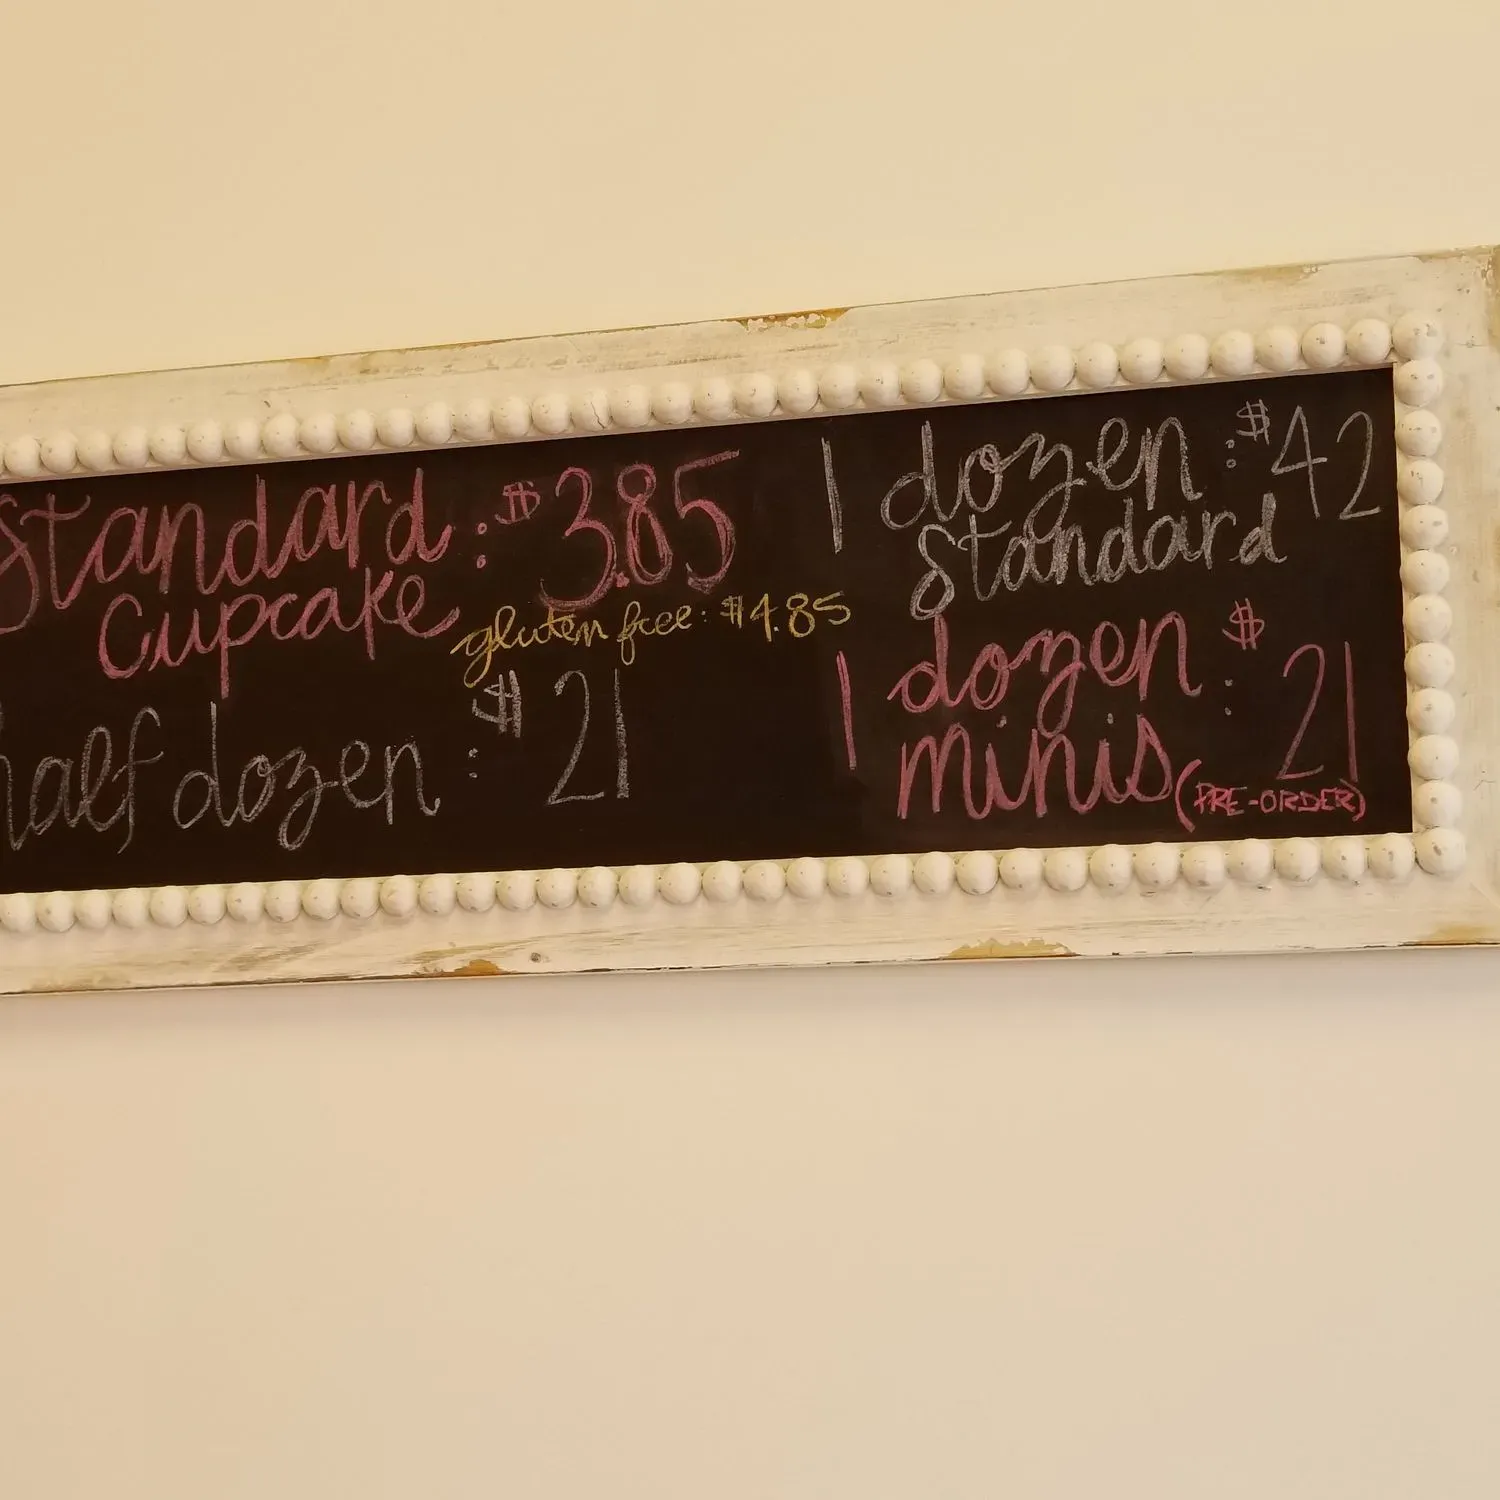 Standard : $3.85
Cupcake
gluten free: $4.85
half dozen : $21
1 dozen : $42
standard
1 dozen : $21
minis (PRE-ORDER)